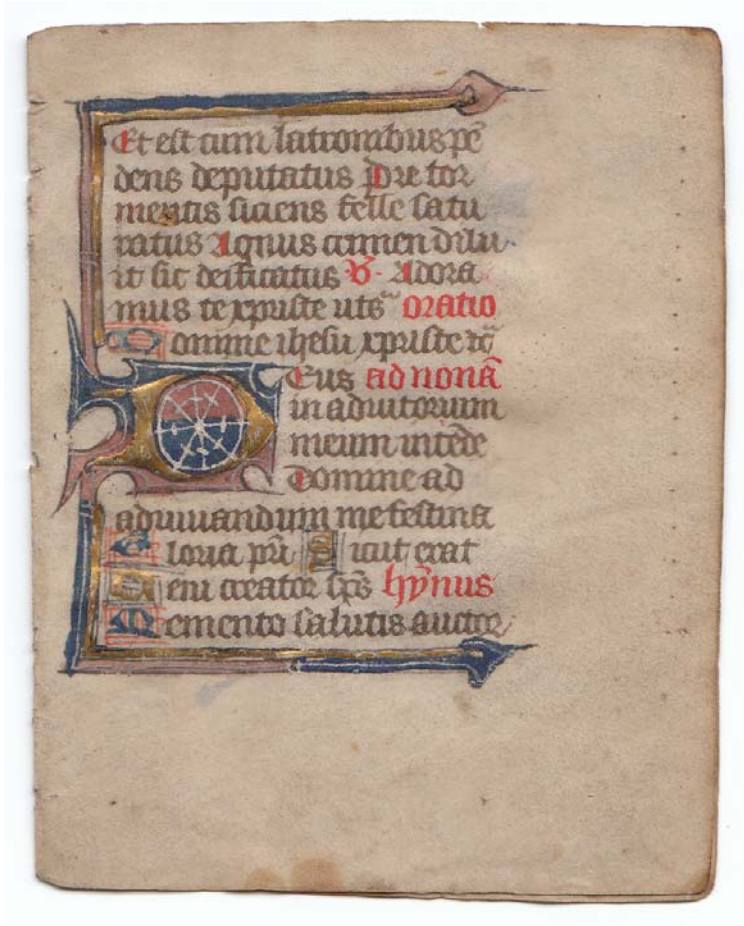 Et est cum latronibus pē
dens deputatus Pre tor
mentis siciens felle satu
ratus Agnus crimen dilu
it sic deificatus ℣. Adora
mus te xpriste uts̄ oratio
Domine ihesu xpriste
Deus ad nonā
in adiutorium
meum intēde
Domine ad
adiuuandum me festina
Gloria pr̄i Sicut erat
Veni creator sp̄s hȳnus
Memento salutis auctor